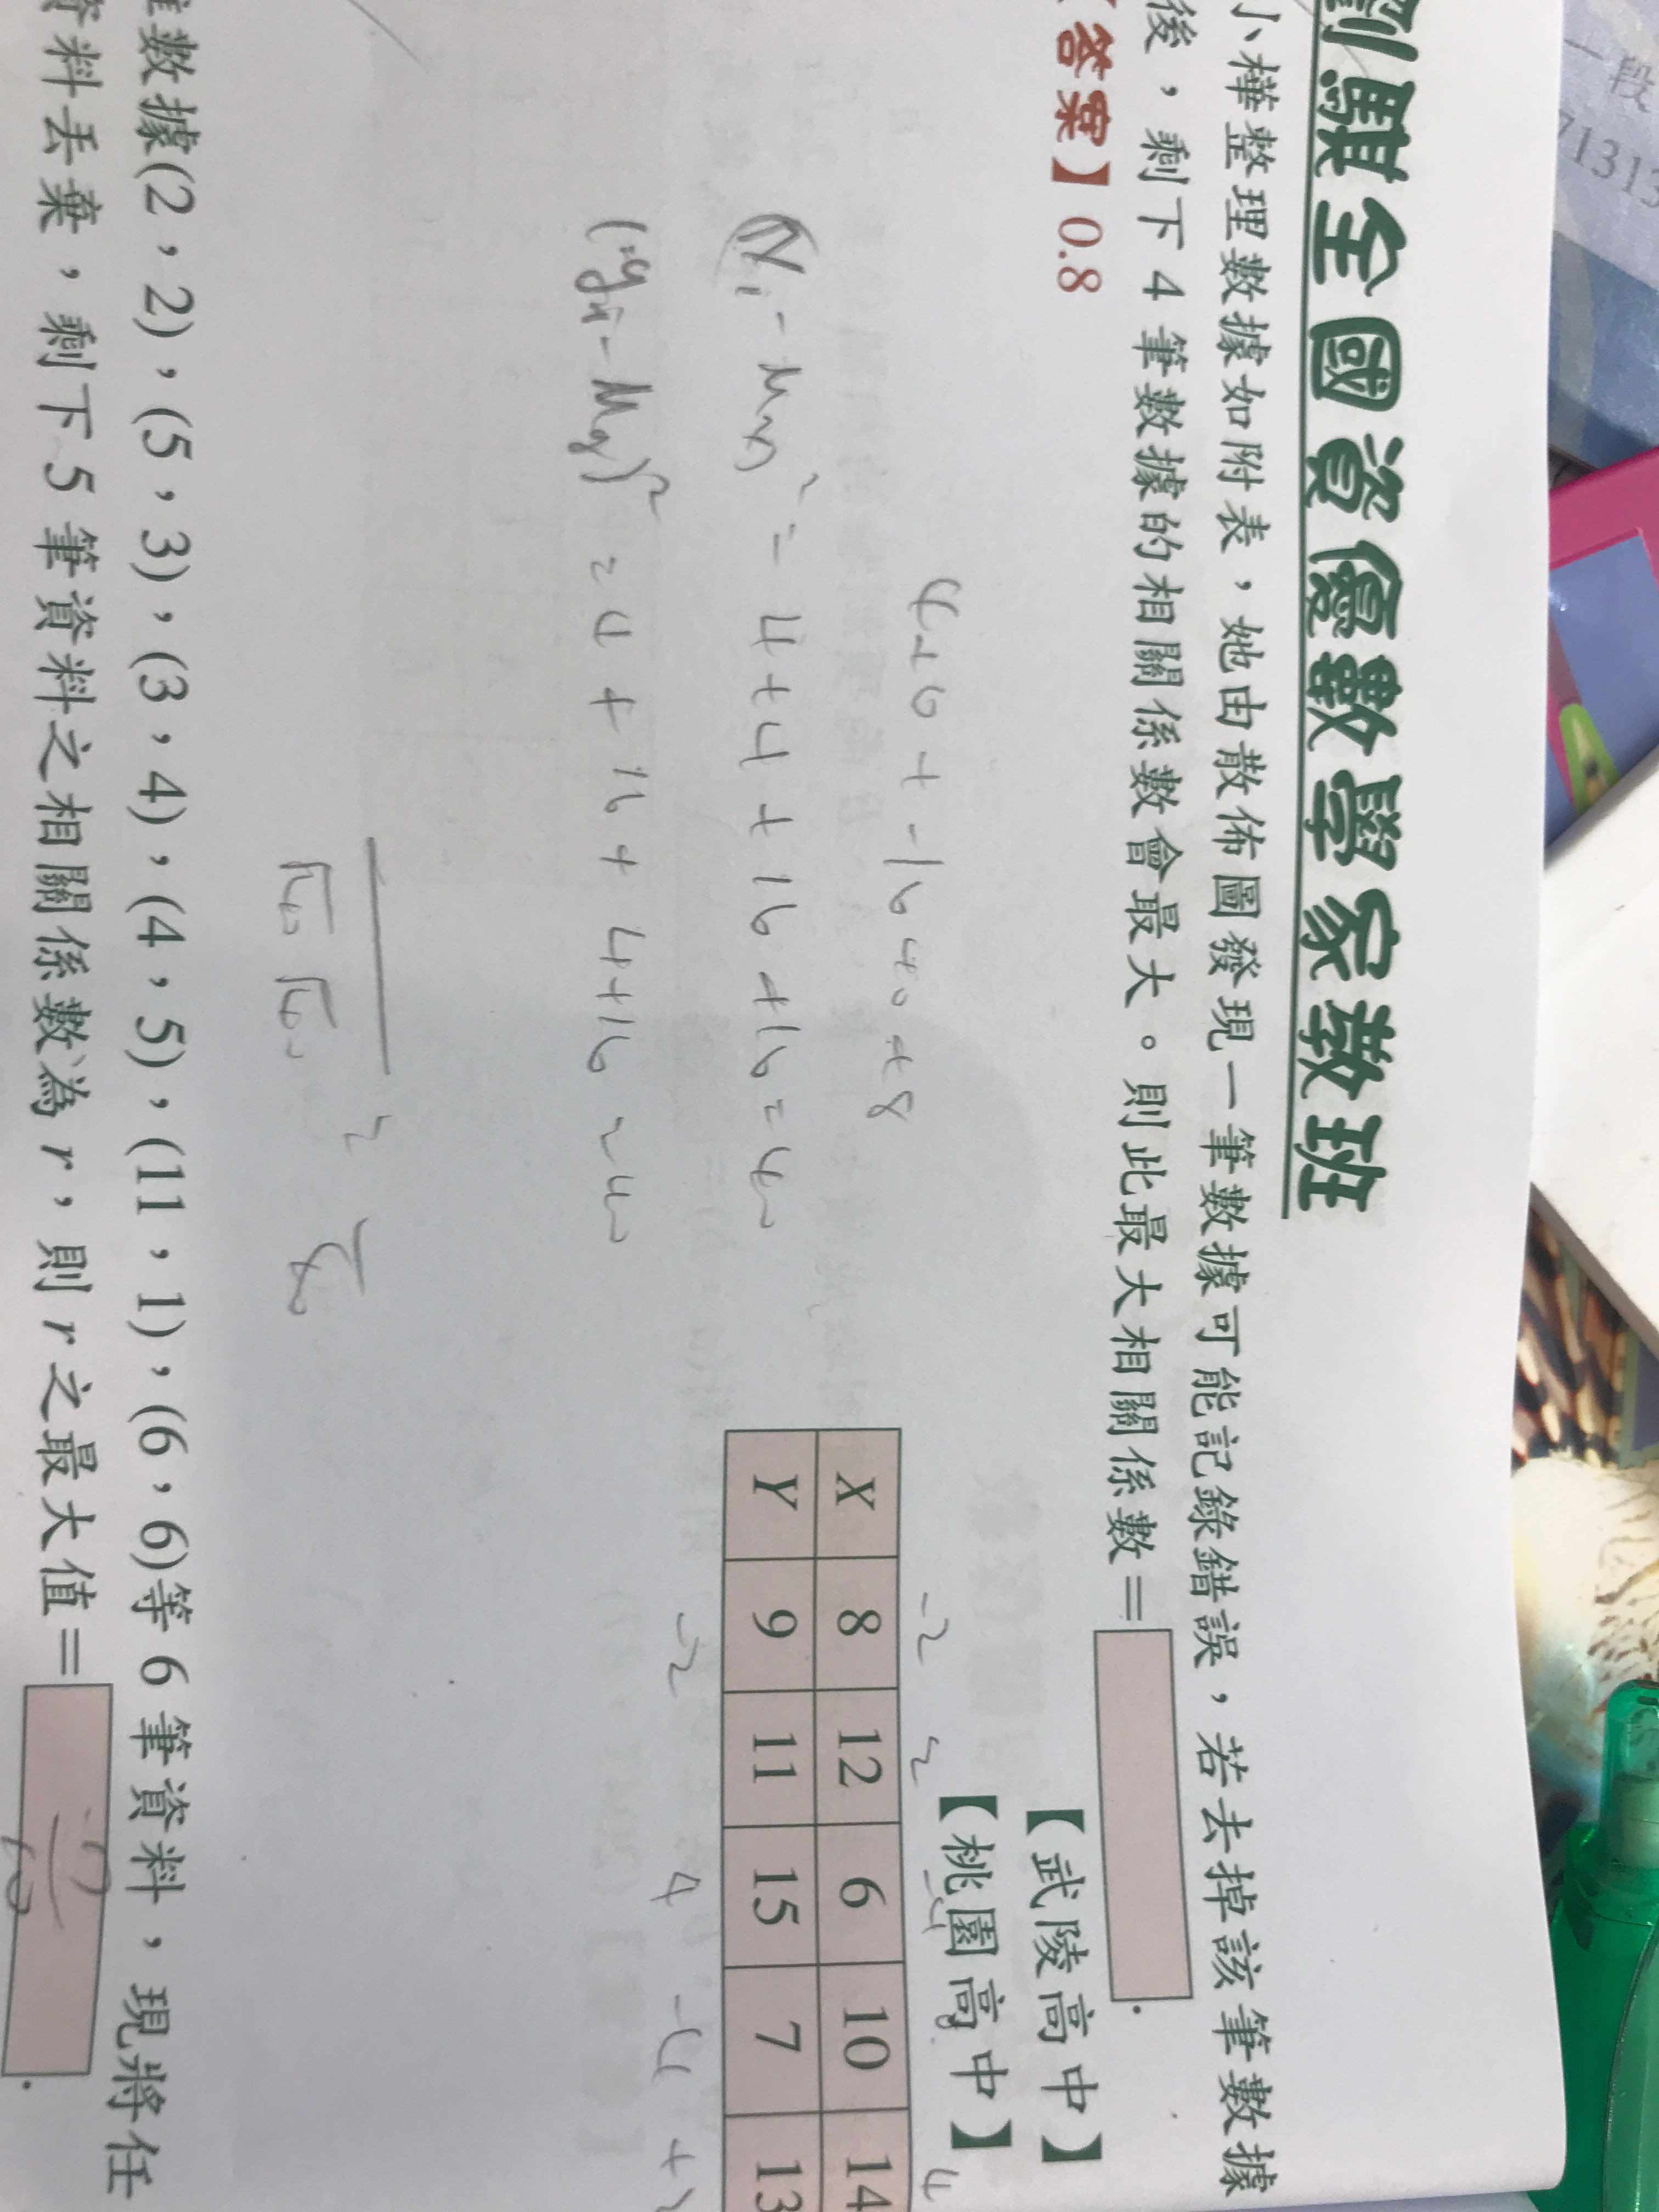 全國資優數學家教班
小樺整理數據如附表，她由散佈圖發現一筆數據可能記錄錯誤，若去掉該筆數據
後，剩下 4 筆數據的相關係數會最大。則此最大相關係數＝
【武陵高中】
答案】0.8
【桃園高中】
-2 2 -4 0 4
X 8 12 6 10 14
Y 9 11 15 7 13
-2 4 -4
4+0+-16+0+8
(Xi-Mx)² = 4+4+16+16=40
(yi-My)² = 4+16+4+16=40
數據(2，2)，(5，3)，(3，4)，(4，5)，(11，1)，(6，6)等 6 筆資料，現將任
資料丢棄，剩下 5 筆資料之相關係數為 r，則 r 之最大值＝
一段
71313